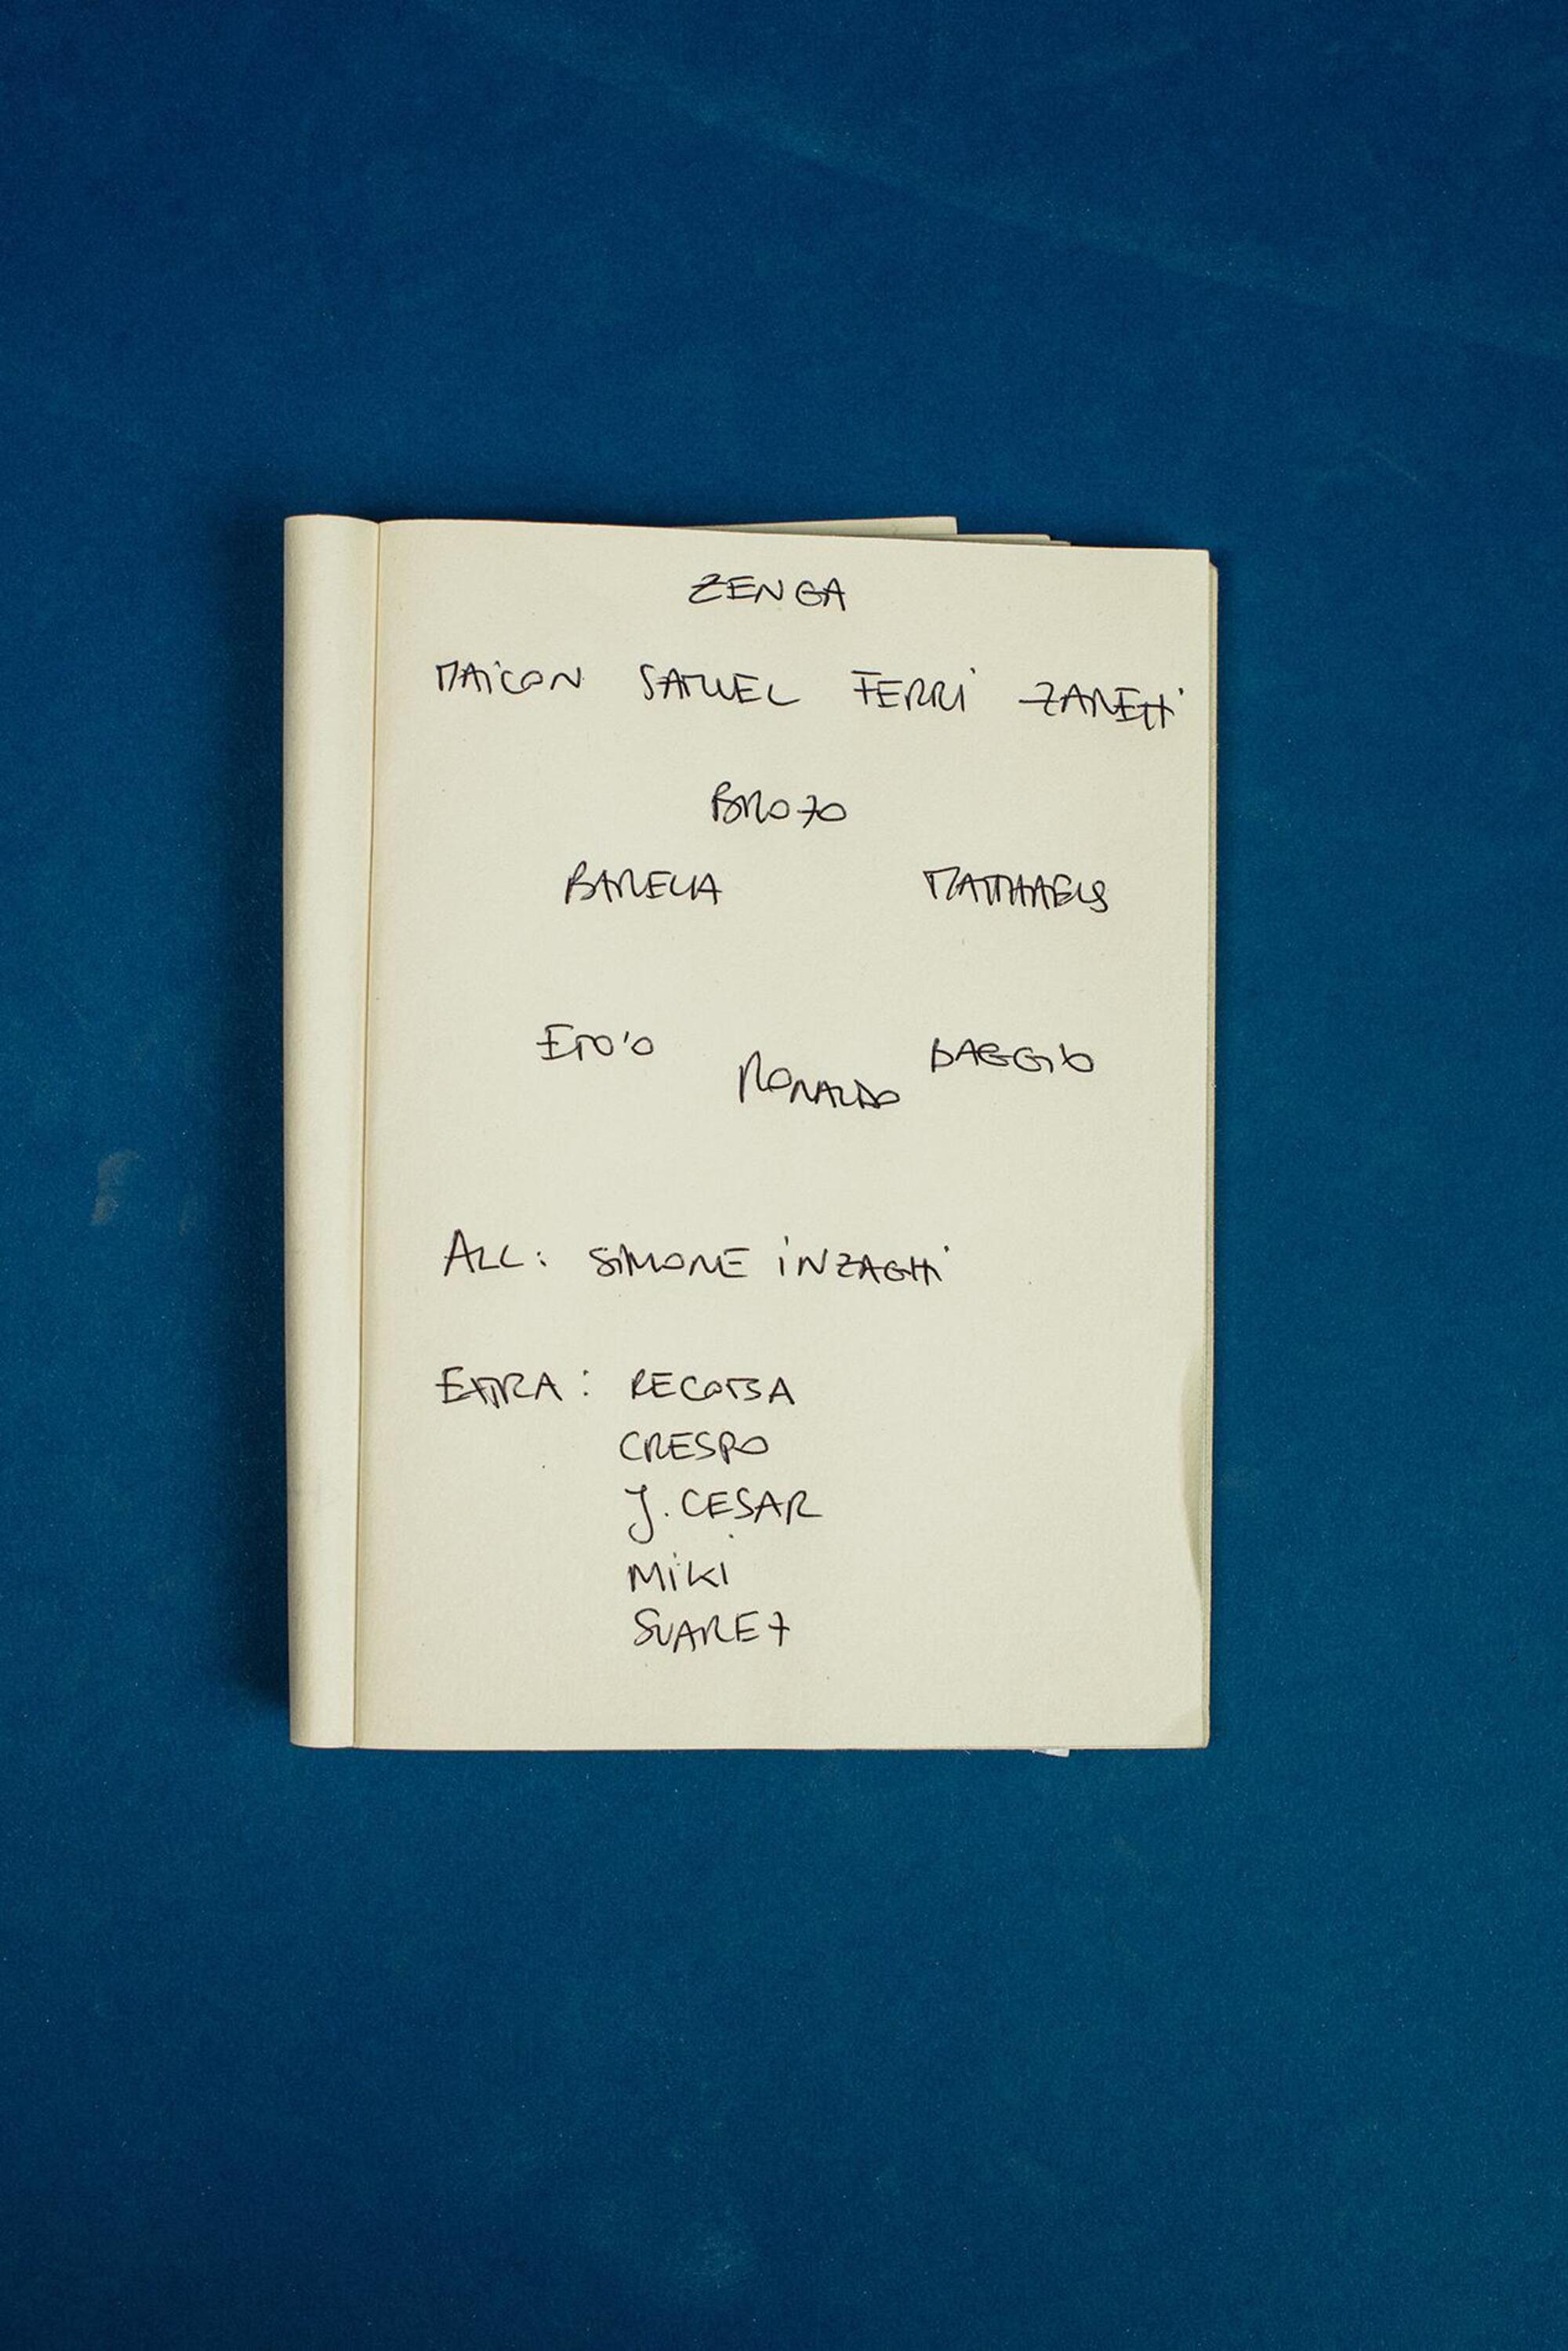 ZENGA
MAICON SAMUEL FERRI ZANETTI
BROZO
BARELLA MATTHAEUS
ETO'O RONALDO BAGGIO
ALL: SIMONE INZAGHI
EXTRA: RECOBA
CRESPO
J. CESAR
MIKI
SUAREZ